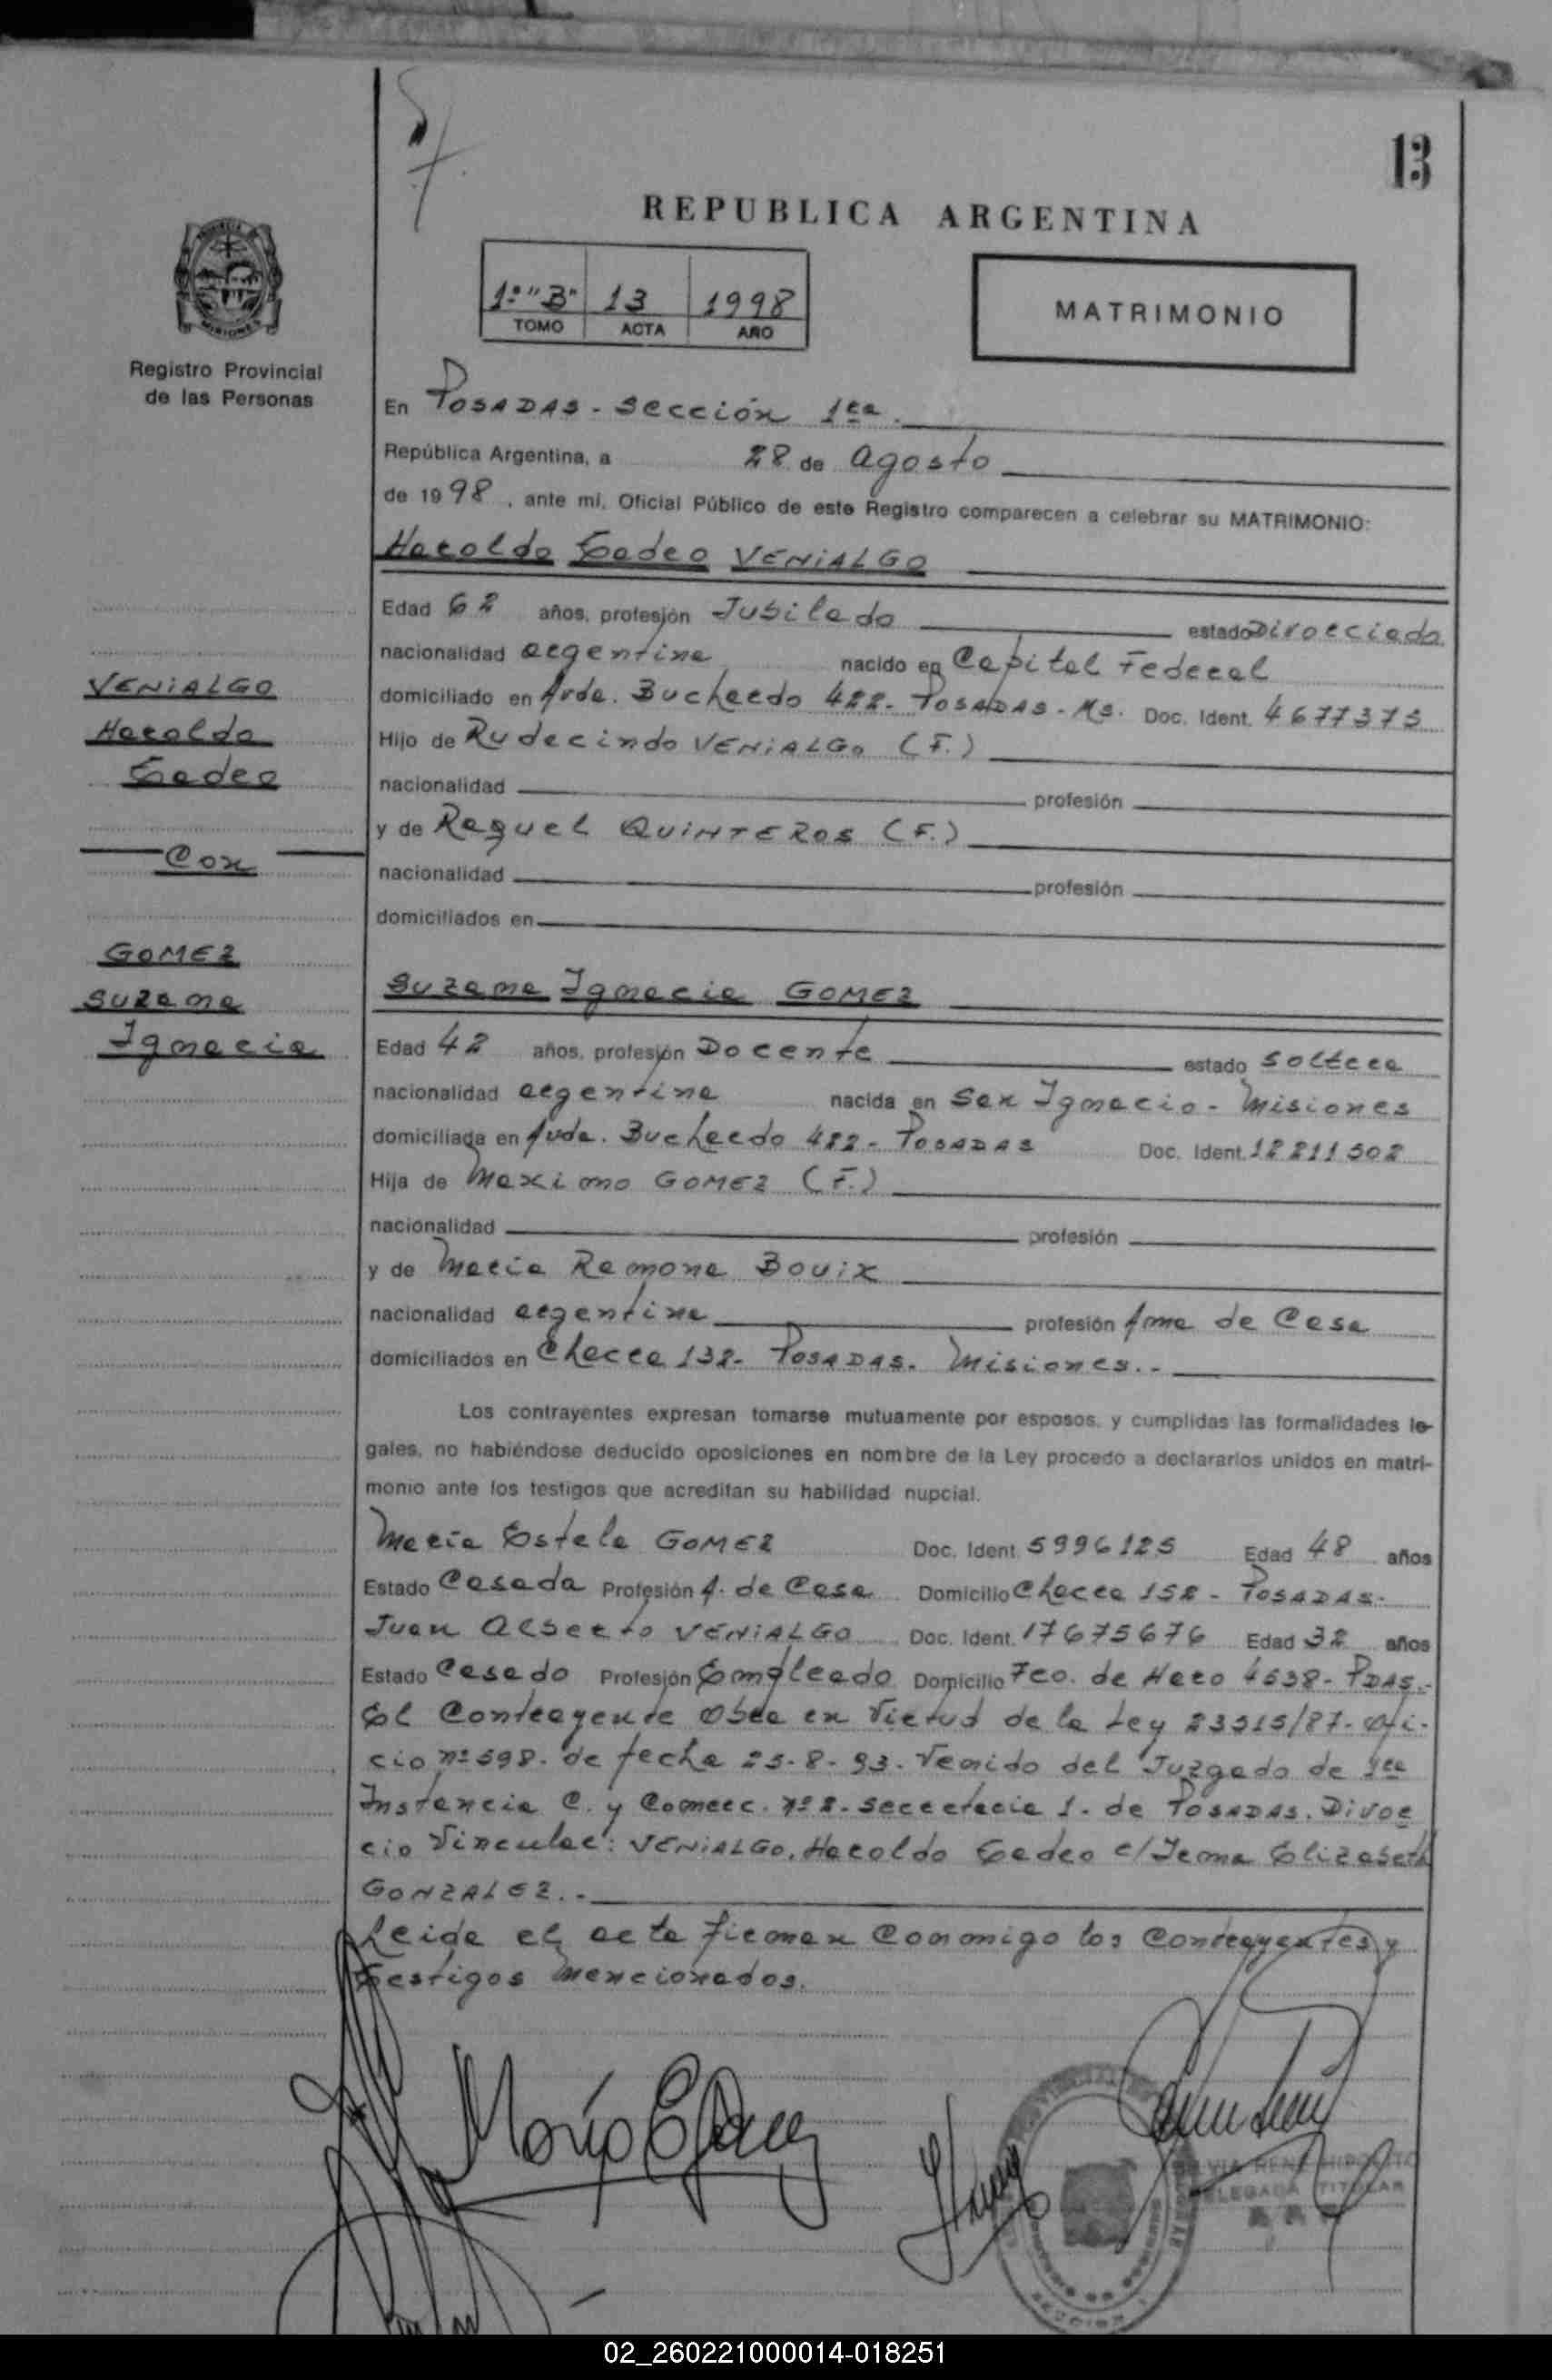 13
REPUBLICA ARGENTINA
1º "B" 13 1998
TOMO ACTA AÑO
MATRIMONIO
Registro Provincial
de las Personas
En POSADAS - Sección 1ra.
República Argentina, a 28 de agosto
de 1998, ante mí, Oficial Público de este Registro comparecen a celebrar su MATRIMONIO:
Haroldo Tadeo VENIALGO
Edad 62 años, profesión Jubilado estado Divorciado
nacionalidad argentina nacido en Capital Federal
domiciliado en Avda. Buchardo 422- POSADAS - Ms. Doc. Ident. 4677373
Hijo de Rudecindo VENIALGO (F.)
nacionalidad profesión
y de Raquel QUINTEROS (F.)
nacionalidad profesión
domiciliados en
VENIALGO
Haroldo
Tadeo
Con
GOMEZ
Suzana
Ignacia
Suzana Ignacia GOMEZ
Edad 42 años, profesión Docente estado soltera
nacionalidad argentina nacida en San Ignacio - Misiones
domiciliada en Avda. Buchardo 422- POSADAS Doc. Ident. 12211502
Hija de Maximo GOMEZ (F.)
nacionalidad profesión
y de Maria Ramona Bouix
nacionalidad argentina profesión Ama de Casa
domiciliados en Chacra 132- POSADAS. Misiones.-
Los contrayentes expresan tomarse mutuamente por esposos, y cumplidas las formalidades le-
gales, no habiéndose deducido oposiciones en nombre de la Ley procedo a declararlos unidos en matri-
monio ante los testigos que acreditan su habilidad nupcial.
María Estela GOMEZ Doc. Ident. 5996125 Edad 48 años
Estado Casada Profesión A. de Casa Domicilio Chacra 158 - POSADAS-
Juan Alberto VENIALGO Doc. Ident. 17675676 Edad 32 años
Estado Casado Profesión Empleado Domicilio Fco. de Haro 4638- PDAS.-
El Contrayente Obra en Virtud de la Ley 23515/87- Ofi-
cio nº 598. de fecha 25-8-93. Venido del Juzgado de 1ra
Instancia C. y Comerc. nº 2- Secretaria 1. de POSADAS. Divor
cio Vincular: VENIALGO, Haroldo Tadeo c/ Irma Elizabeth
GONZALEZ.-
Leida el acta firman Conmigo los Contrayentes y
testigos mencionados.
RENE HIPOLITO
DELEGADA TITULAR
02_260221000014-018251